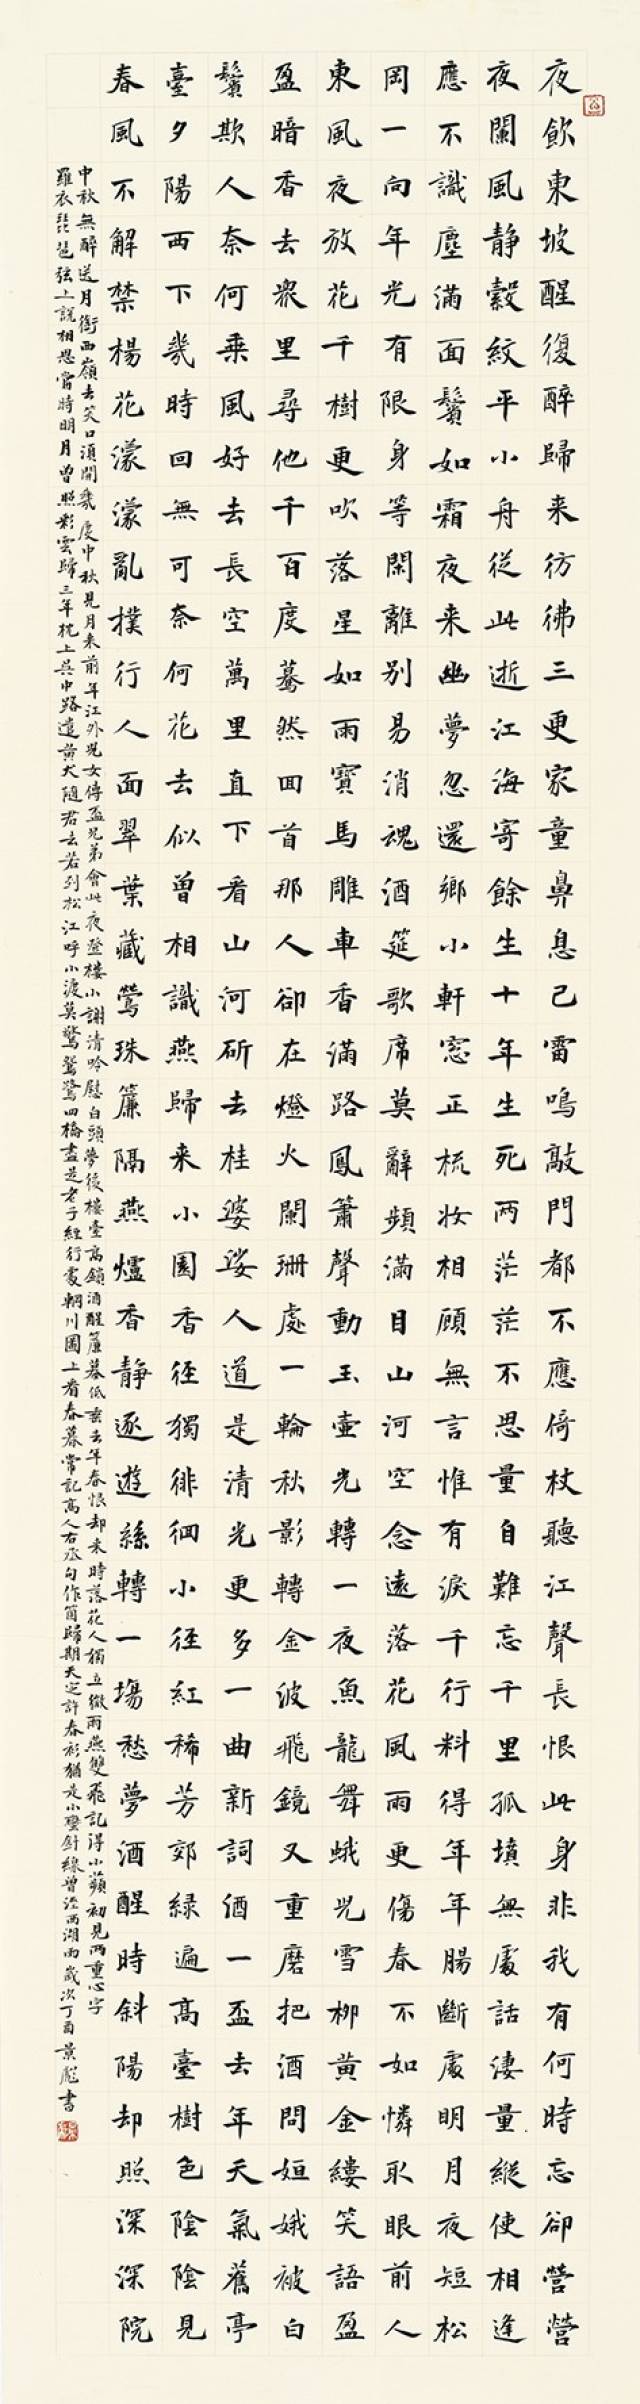 夜飲東坡醒復醉歸来彷彿三更家童鼻息已雷鳴敲門都不應倚杖聽江聲長恨此身非我有何時忘卻營營
夜闌風静縠紋平小舟從此逝江海寄餘生十年生死兩茫茫不思量自難忘千里孤墳無處話淒量縱使相逢
應不識塵滿面鬢如霜夜来幽夢忽還鄉小軒窓正梳妝相顧無言惟有淚千行料得年年腸斷處明月夜短松
岡一向年光有限身等閑離別易消魂酒筵歌席莫辭頻滿目山河空念遠落花風雨更傷春不如憐取眼前人
東風夜放花千樹更吹落星如雨寶馬雕車香滿路鳳簫聲動玉壺光轉一夜魚龍舞蛾兒雪柳黄金縷笑語盈
盈暗香去衆里尋他千百度驀然回首那人卻在燈火闌珊處一輪秋影轉金波飛鏡又重磨把酒問姮娥被白
鬢欺人奈何乗風好去長空萬里直下看山河斫去桂婆娑人道是清光更多一曲新詞酒一盃去年天氣舊亭
臺夕陽西下幾時回無可奈何花去似曾相識燕歸来小園香徑獨徘徊小徑紅稀芳郊綠遍高臺樹色陰陰見
春風不解禁楊花濛濛亂撲行人面翠葉藏鶯珠簾隔燕爐香静逐遊絲轉一場愁夢酒醒時斜陽却照深深院
中秋無醉送月銜西嶺去笑口須開幾度中秋見月来前年江外兒女傳盃兄弟會此夜登樓小謝清吟慰白頭夢後樓臺高鎖酒醒簾幕低垂去年春恨却来時落花人獨立微雨燕雙飛記得小蘋初見兩重心字
羅衣琵琶弦上說相思當時明月曾照彩雲歸三年枕上吳中路遣黄犬隨君去若到松江呼小渡莫驚鴛鷺四橋盡是老子經行處輞川圖上看春暮常記高人右丞句作箇歸期天定許春衫猶是小蠻針線曾溼西湖雨歲次丁酉景彪書